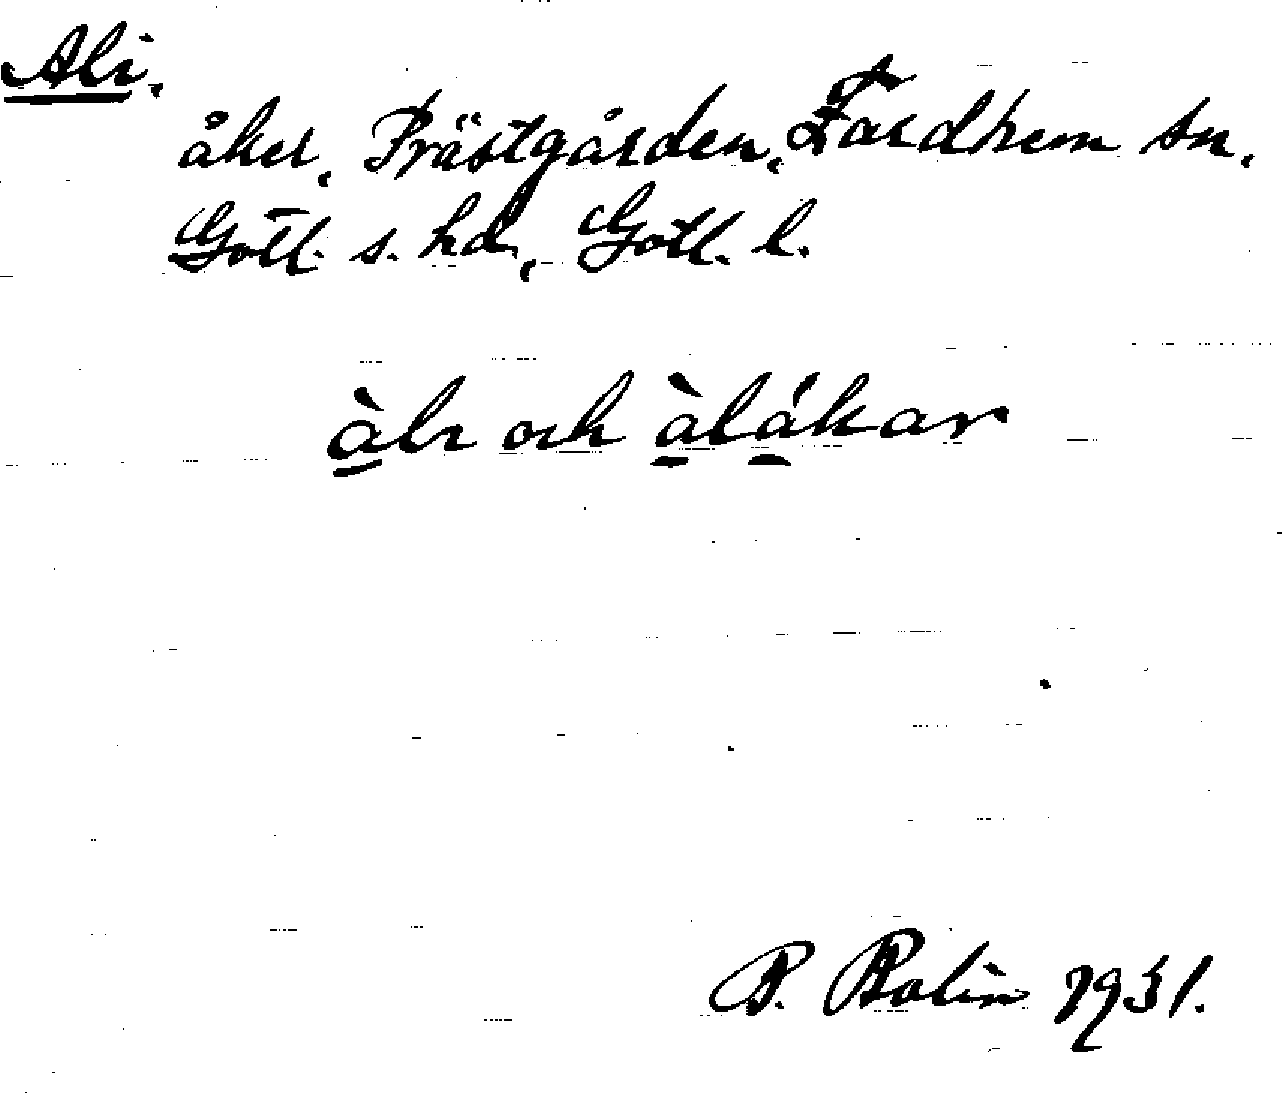 Ali.
åker, Prästgården, Fardhem sn,
Gotl. s. hd, Gotl. l.
àli och àlákar
B. Bolin 1931.